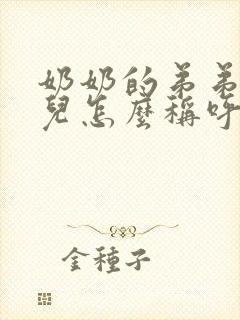 奶奶的弟弟
兒怎麼稱呼
金種子